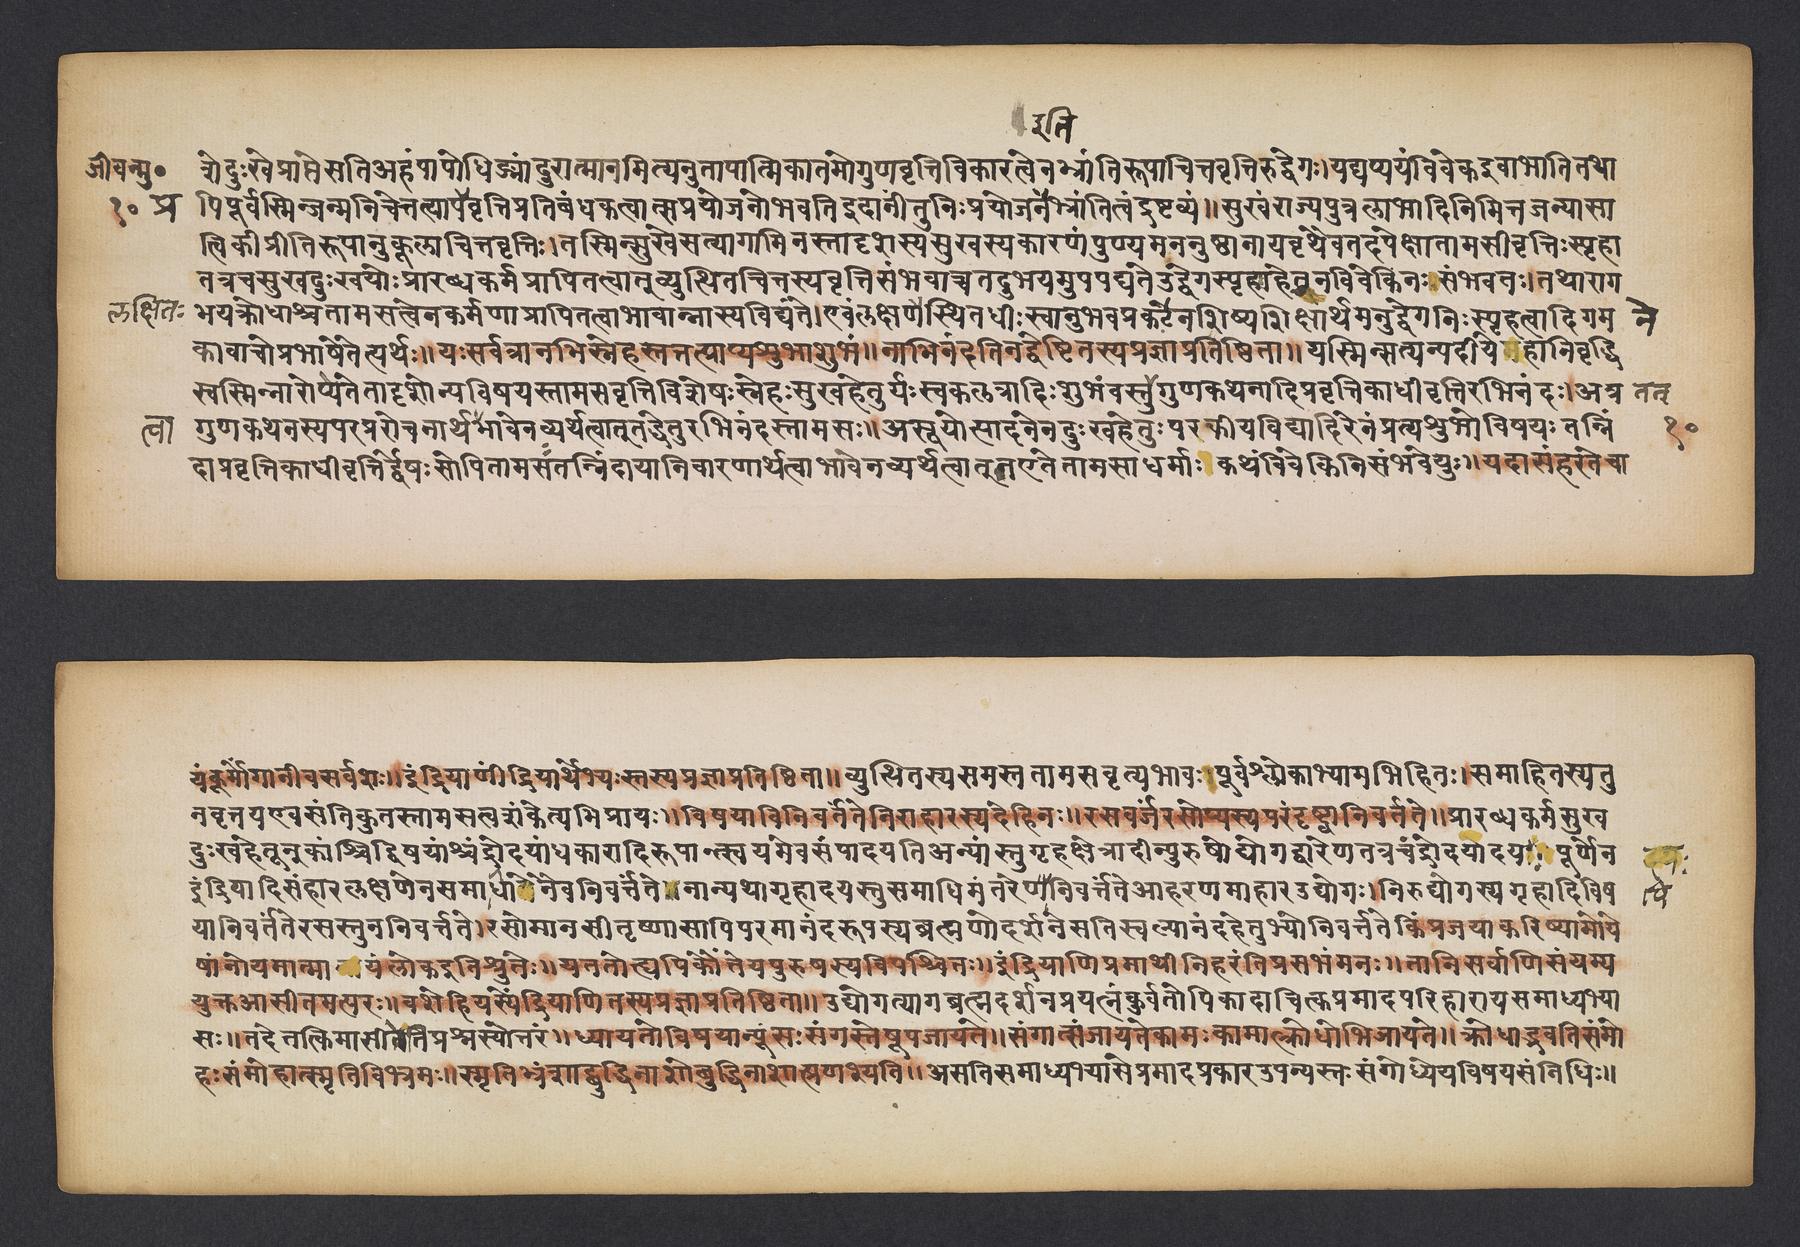 इति
जीवन्मु०
त्रोदुःखेप्राप्तेसतिअहंपापोधिङ्मांदुरात्मानमित्यनुतापात्मिकातमोगुणवृत्तिविकारत्वेनभ्रांतिरूपाचित्तवृत्तिरुद्वेगः।यद्यप्ययंविवेकइवाभातितथा
१० प्र
पिपूर्वस्मिन्जन्मनिचेत्तत्पापवृत्तिप्रतिबंधकत्वात्सप्रयोजनोभवतिइदानींतुनिःप्रयोजनभ्रांतित्वंद्रष्टव्यं॥सुखंराज्यपुत्रलाभादिनिमित्तजन्यासा
त्विकीप्रीतिरूपानुकूलाचित्तवृत्तिः।तस्मिन्सुखेसत्यागामिनस्तादृशस्यसुखस्यकारणंपुण्यमननुष्ठानायवृथैवतदपेक्षातामसीवृत्तिःस्पृहा
तत्रचसुखदुःखयोःप्रारब्धकर्मप्रापितत्वात्व्युत्थितचित्तस्यवृत्तिसंभवाच्चतदुभयमुपपद्यतेउद्वेगस्पृहाहेतूनविवेकिनःसंभवतः।तथाराग
लक्षितः
भयक्रोधाश्चतामसत्वेनकर्मणाप्रापितत्वाभावान्नास्यविद्यंते।एवंलक्षणस्थितधीःस्वानुभवप्रकटनेनशिष्यशिक्षार्थमनुद्वेगनिःस्पृहत्वादिगम
ने
कावाचोप्रभाषेतेत्यर्थः॥यःसर्वत्रानभिस्नेहस्तत्तत्प्राप्यशुभाशुभं॥नाभिनंदतिनद्वेष्टितस्यप्रज्ञाप्रतिष्ठिता॥यस्मिन्सत्यन्यदीयेहानिवृद्धि
स्वस्मिन्नारोप्येतेतादृशोन्यविषयस्तामसवृत्तिविशेषःस्नेहःसुखहेतुर्यःस्वकलत्रादिःशुभंवस्तुगुणकथनादिप्रवृत्तिकाधीवृत्तिरभिनंदः।अत्र
तत
त्वा
गुणकथनस्यपरप्ररोचनार्थभावेनव्यर्थत्वात्तद्धेतुरभिनंदस्तामसः॥असूयोत्पादनेनदुःखहेतुःपरकीयविद्यादिरेनंप्रत्यशुभोविषयःतन्निं
१०
दाप्रवृत्तिकाधीवृत्तिर्द्वेषःसोपितामसःतन्निंदायानिवारणार्थत्वाभावेनव्यर्थत्वात्तएतेतामसाधर्माःकथंविवेकिनिसंभवेयुः॥यदासंहरतेचा
यंकूर्मोंगानीवसर्वशः॥इंद्रियाणींद्रियार्थेभ्यःस्तस्यप्रज्ञाप्रतिष्ठिता॥व्युत्थितस्यसमस्ततामसवृत्यभावःपूर्वश्लोकाभ्यामभिहितः।समाहितस्यतु
नवृत्तयएवसंतिकुतस्तामसत्वशंकेत्यभिप्रायः॥विषयाविनिवर्तंतेनिराहारस्यदेहिनः॥रसवर्जंरसोप्यस्यपरंदृष्ट्वानिवर्त्तते॥प्रारब्धकर्मसुख
दुःखहेतूनुकांश्चिद्विषयांश्चंद्रोदयांधकारादिरूपान्स्वयमेवसंपादयतिअन्यांस्तुगृहक्षेत्रादीन्पुरुषोद्योगद्वारेणतत्रचंद्रोदयादयःपूर्णेन
इंद्रियादिसंहारलक्षणेनसमाधिनैवनिवर्त्तंतेनान्यथागृहादयस्तुसमाधिमंतरेणनिवर्त्तंतेआहरणमाहारउद्योगः।निरुद्योगस्यगृहादिविष
पि
यानिवर्तंतेरसस्तुननिवर्त्तते।रसोमानसीतृष्णासापिपरमानंदरूपस्यब्रह्मणोदर्शनेसतिस्वल्पानंदहेतुभ्योनिवर्त्ततेकिंप्रजयाकरिष्यामोये
षांनोयमात्मायंलोकइतिश्रुतेः॥यततोह्यपिकौंतेयपुरुषस्यविपश्चितः॥इंद्रियाणिप्रमाथीनिहरंतिप्रसभंमनः॥तानिसर्वाणिसंयम्य
युक्तआसीतमत्परः॥वशेहियस्येंद्रियाणितस्यप्रज्ञाप्रतिष्ठिता॥उद्योगत्यागब्रह्मदर्शनप्रयत्नंकुर्वतोपिकादाचित्कप्रमादपरिहारायसमाध्यभ्या
सः॥तदेतत्किमासीतेतिप्रश्नस्योत्तरं॥ध्यायतोविषयान्पुंसःसंगस्तेषूपजायते॥संगात्संजायतेकामःकामात्क्रोधोभिजायते॥क्रोधाद्भवतिसंमो
हःसंमोहात्स्मृतिविभ्रमः॥स्मृतिभ्रंशाद्बुद्धिनाशोबुद्धिनाशात्प्रणश्यति॥असतिसमाध्यभ्यासेप्रमादप्रकारउपन्यस्तःसंगोध्येयविषयसंनिधिः॥